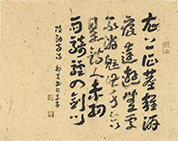 衣上征塵雜酒
痕遠遊無處
不消魂此身合
是詩人未細
雨騎驢入劍門